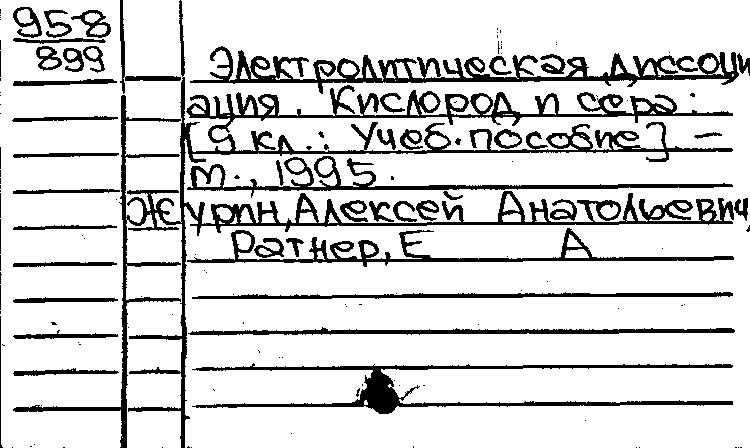 95-8
899
Электролитическая диссоци
ация. Кислород и сера:
[9 кл.: Учеб. пособие]. –
м., 1995.
Журин, Алексей Анатольевич,
Ратнер, Е А